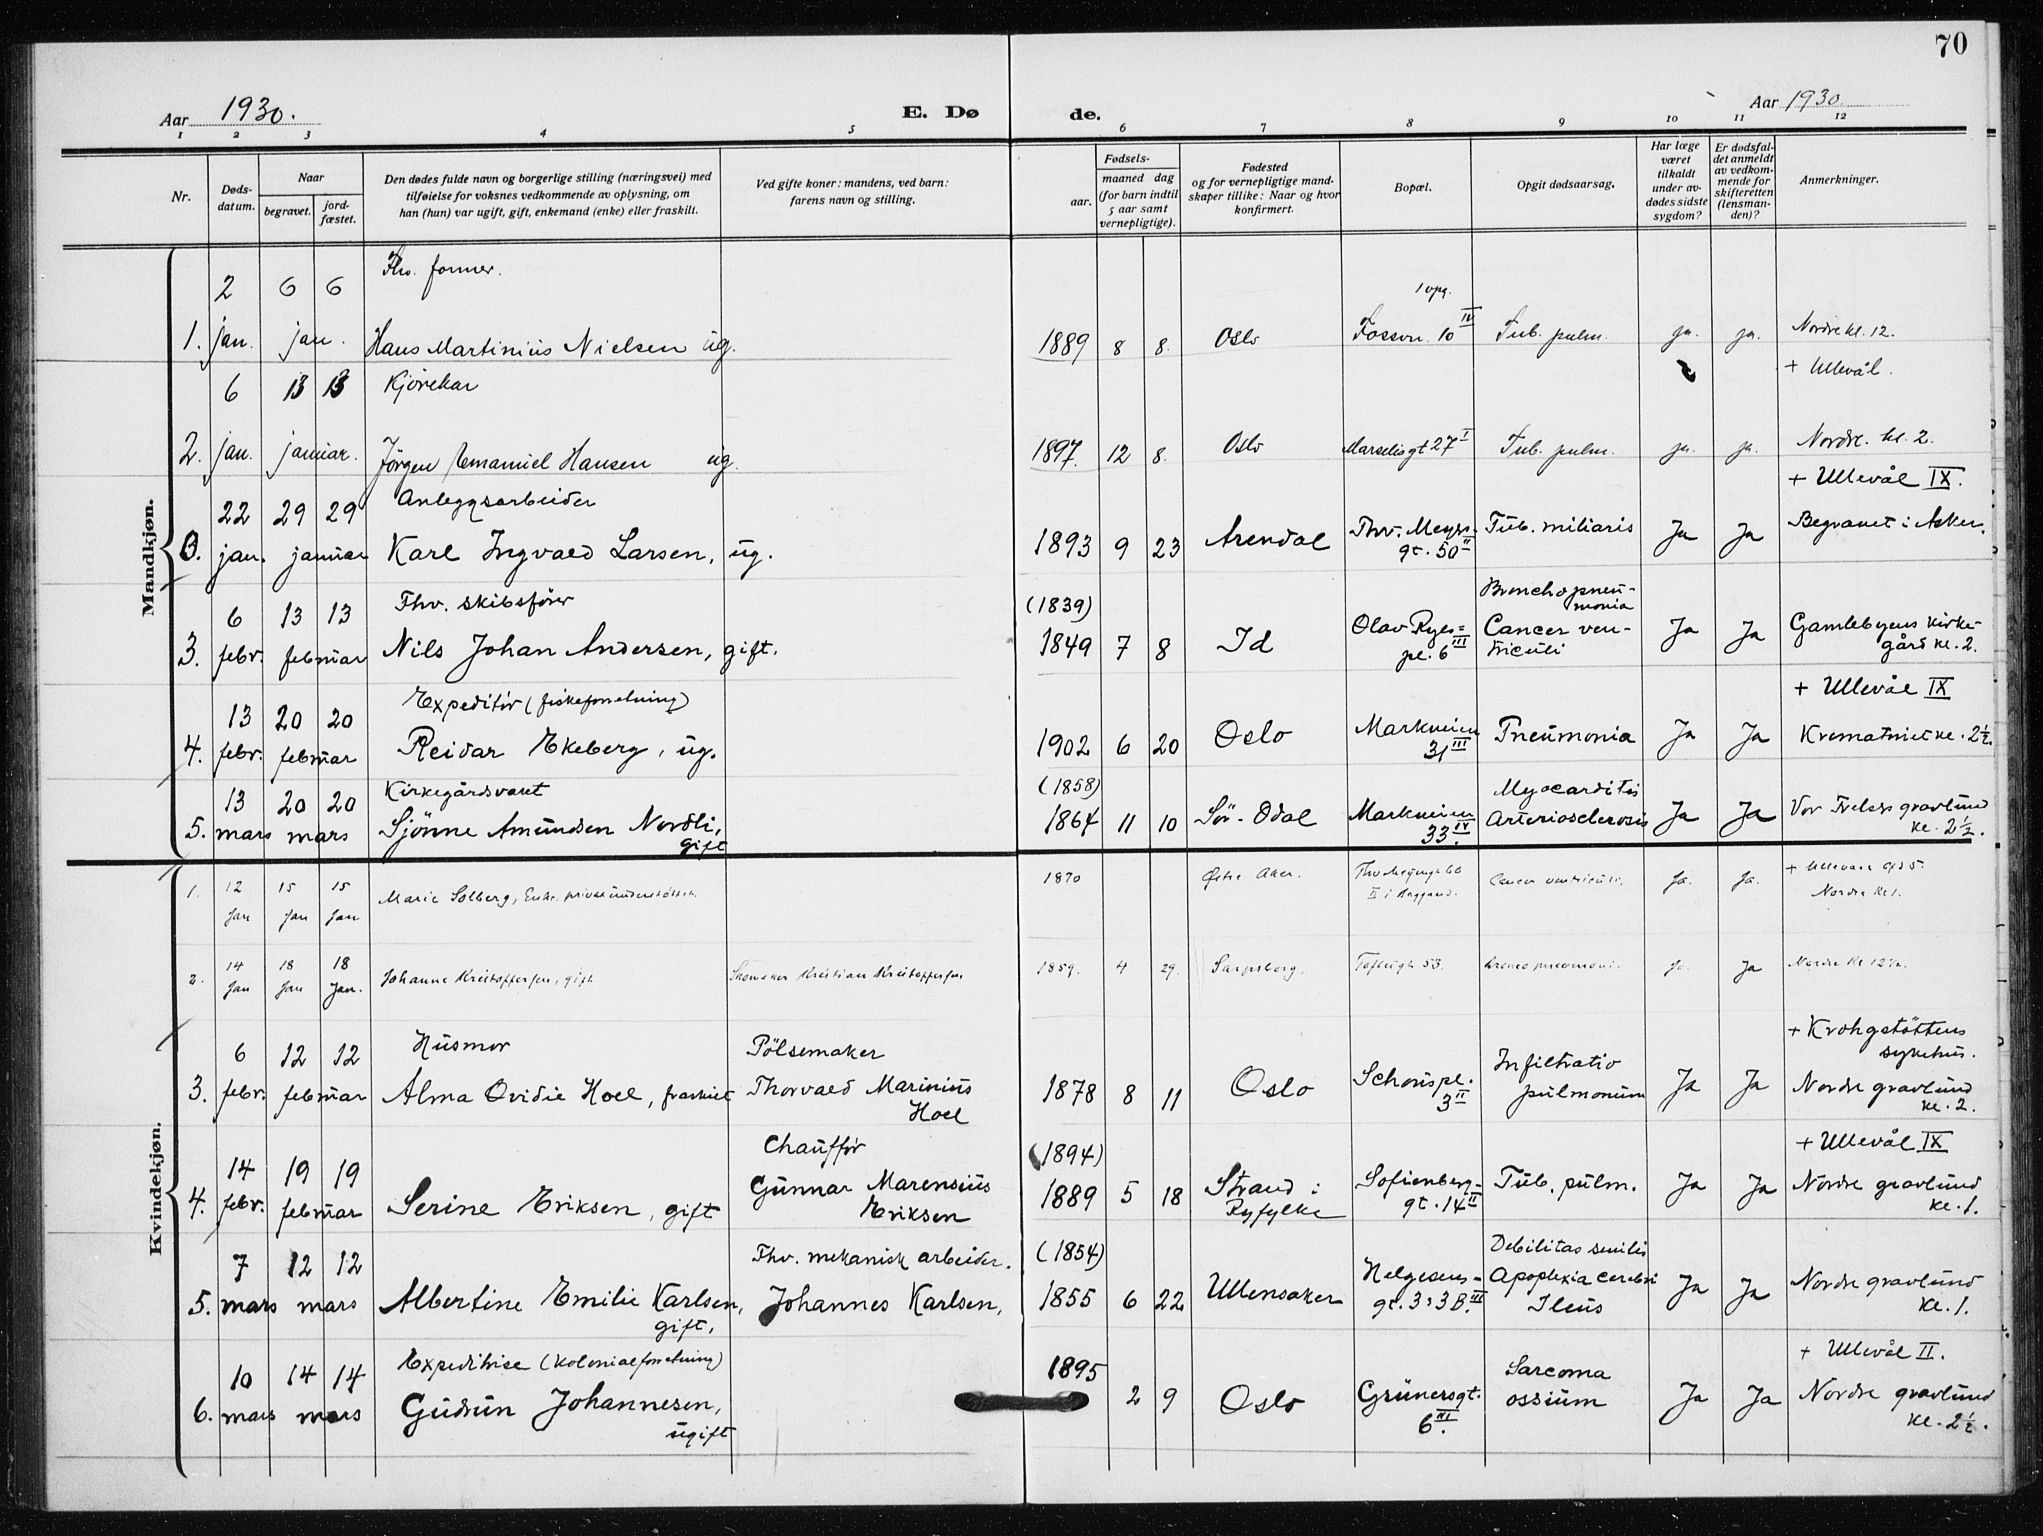 70
Aar 1930.
E. Dø
de.
Aar 1930.
1 2 3 4 5 6 7 8 9 10 11 12
Nr.
Døds-
datum.
Naar
begravet.
jord-
fæstet.
Den dødes fulde navn og borgerlige stilling (næringsvei) med
tilføielse for voksnes vedkommende av oplysning, om
han (hun) var ugift, gift, enkemand (enke) eller fraskilt.
Ved gifte koner: mandens, ved barn:
farens navn og stilling.
Fødsels-
aar.
maaned dag
(for barn indtil
5 aar samt
vernepligtige).
Fødested
og for vernepligtige mand-
skaper tillike: Naar og hvor
konfirmert.
Bopæl.
Opgit dødsaarsag.
Har læge
været
tilkaldt
under av-
dødes sidste
sygdom?
Er dødsfal-
det anmeldt
av vedkom-
mende for
skifteretten
(lensman-
den)?
Anmerkninger.
Mandkjøn.
2 6 6 Fhv. former. 1 opg.
1. jan. jan. Hans Martinius Nielsen ug. 1889 8 8. Oslo Fossvn. 10 IV Tub. pulm. ja. ja. Nordre kl. 12.
6 13 13 Kjørekar + Ullevål.
2. jan. januar. Jörgen Emanuel Hansen ug. 1897. 12 8. Oslo Marselisgt 27 I Tub. pulm. ja. ja. Nordre. kl. 2.
22 29 29 Anleggsarbeider + Ullevål IX.
jan. januar Karl Ingvald Larsen, ug. 1893 9 23 Arendal Thv. Meyers-
gt. 50 II Tub. miliaris Ja Ja Begravet i Aker.
6 13 13 Fhv. skibsfører (1839) Bronchopneu-
monia
3. febr. februar Nils Johan Andersen, gift. 1849 7 8 Id Olav Ryes=
pl. 6 III Cancer ven-
triculi Ja Ja Gamlebyens kirke-
gård kl. 2.
13 20 20 Expeditör (fiskeforretning) + Ullevål IX
4. febr. februar Reidar Ekeberg, ug. 1902 6 20 Oslo Markveien
31 III Pneumonia Ja Ja Krematoriet kl. 2½.
13 20 20 Kirkegårdsvakt (1858) Myocarditis
5. mars mars Sjönne Amundsen Nordli,
gift 1864 11 10 Sör-Odal Markveien
33 IV. Arteriosclerosis Ja Ja Vor Frelsers gravlund
kl. 2½.
Kvindekjøn.
12 15 15 + Ullevål
1. Jan Jan Jan Marie Solberg, Enke, privat understöttet. 1870 Østre Aker. Thv Meyersgt 60
II i Baggaard. Cancer ventriculi. Ja. Ja. Nordre kl 1.
14 18 18
2. Jan Jan Jan. Johanne Kristoffersen, gift Skomaker Kristian Kristoffersen 1859. 4 29. Sarpsborg. Toftesgt 53. ja. Ja Nordre kl 12½.
6 12 12 Husmor Pölsemaker + Krohgstöttens
sykehus.
3. febr. februar Alma Ovidie Hoel, fraskilt Thorvald Marinius
Hoel 1878 8 11 Oslo Schouspl.
3 II Infiltratio
pulmonum Ja Ja Nordre gravlund
kl. 2.
14 19 19 Chauffør (1894) + Ullevål IX
4. febr. februar Serine Eriksen, gift Gunnar Marensius
Eriksen 1889 5 18 Strand i
Ryfylke Sofienberg-
gt. 14 II Tub. pulm. Ja Ja Nordre gravlund
kl. 1.
7 12 12 Fhv. mekanisk arbeider. (1854) Debilitas senilis
5. mars mars Albertine Emilie Karlsen,
gift, Johannes Karlsen, 1855 6 22 Ullensaker Helgesens-
gt. 33 B. III Apoplexia cerebri
Ileus Ja Ja Nordre gravlund
kl. 1.
10 14 14 Expeditrise (kolonialforretning) 1895 + Ullevål II.
6. mars mars Gudrun Johannesen,
ugift 2 9 Oslo Grünersgt.
6 III. Sarcoma
ossium Ja Ja Nordre gravlund
kl. 2½.